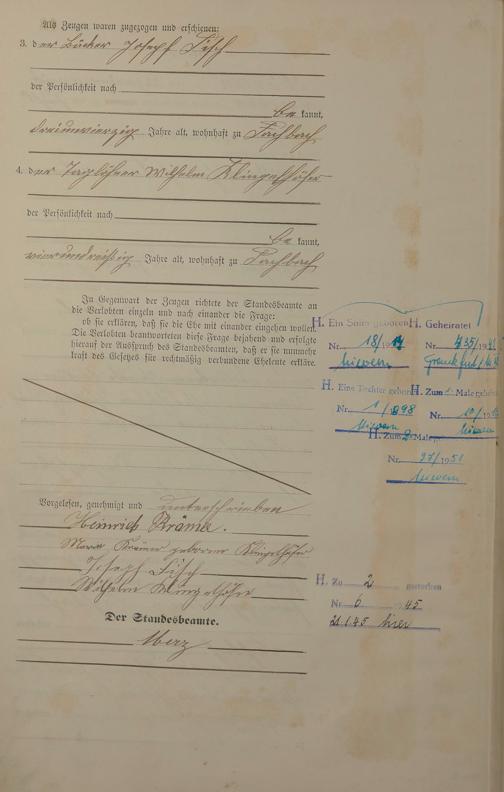 Als Zeugen waren zugezogen und erschienen:
3. der Bäcker Joseph Fisch
der Persönlichkeit nach
be kannt,
dreiundvierzig Jahre alt, wohnhaft zu Fachbach
4. der Taglöhner Wilhelm Klingelhöfer
der Persönlichkeit nach
be kannt,
vierunddreißig Jahre alt, wohnhaft zu Fachbach
In Gegenwart der Zeugen richtete der Standesbeamte an
die Verlobten einzeln und nach einander die Frage:
ob sie erklären, daß sie die Ehe mit einander eingehen wollen.
Die Verlobten beantworteten diese Frage bejahend und erfolgte
hierauf der Ausspruch des Standesbeamten, daß er sie nunmehr
kraft des Gesetzes für rechtmäßig verbundene Eheleute erkläre.
H. Ein Sohn geboren
Nr. 18/19
Nievern
H. Geheiratet
Nr. 435/19
Frankfurt
H. Eine Tochter geboren
Nr. 1/898
Nievern
H. Zum Male
Nr. 10/19
Nievern
H. Zum 2 Male
Nr. 27/1951
Nievern
Vorgelesen, genehmigt und unterschrieben
Heinrich Krämer.
Krämer geborene Klingelhöfer
Joseph Fisch
Wilhelm Klingelhöfer
Der Standesbeamte.
Merz
H. Zu 2 gestorben
Nr. 6 45
21.1.45 hier